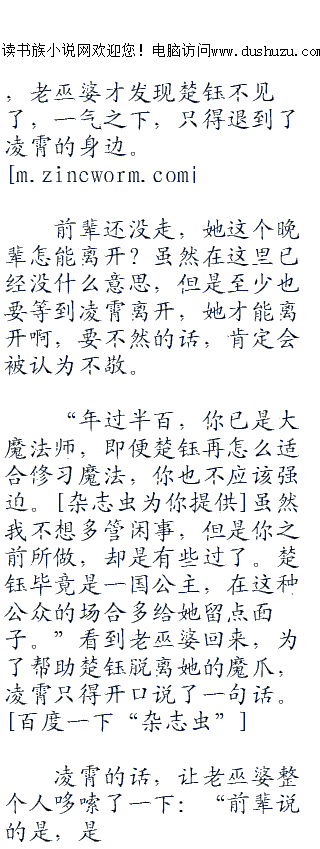 读书族小说网欢迎您！电脑访问www.dushuzu.com
，老巫婆才发现楚钰不见
了，一气之下，只得退到了
凌霄的身边。
[m.zincworm.com|
前辈还没走，她这个晚
辈怎能离开？虽然在这里已
经没什么意思，但是至少也
要等到凌霄离开，她才能离
开啊，要不然的话，肯定会
被认为不敬。
“年过半百，你已是大
魔法师，即便楚钰再怎么适
合修习魔法，你也不应该强
迫。[杂志虫为你提供]虽然
我不想多管闲事，但是你之
前所做，却是有些过了。楚
钰毕竟是一国公主，在这种
公众的场合多给她留点面
子。”看到老巫婆回来，为
了帮助楚钰脱离她的魔爪，
凌霄只得开口说了一句话。
[百度一下“杂志虫”]
凌霄的话，让老巫婆整
个人哆嗦了一下：“前辈说
的是，是